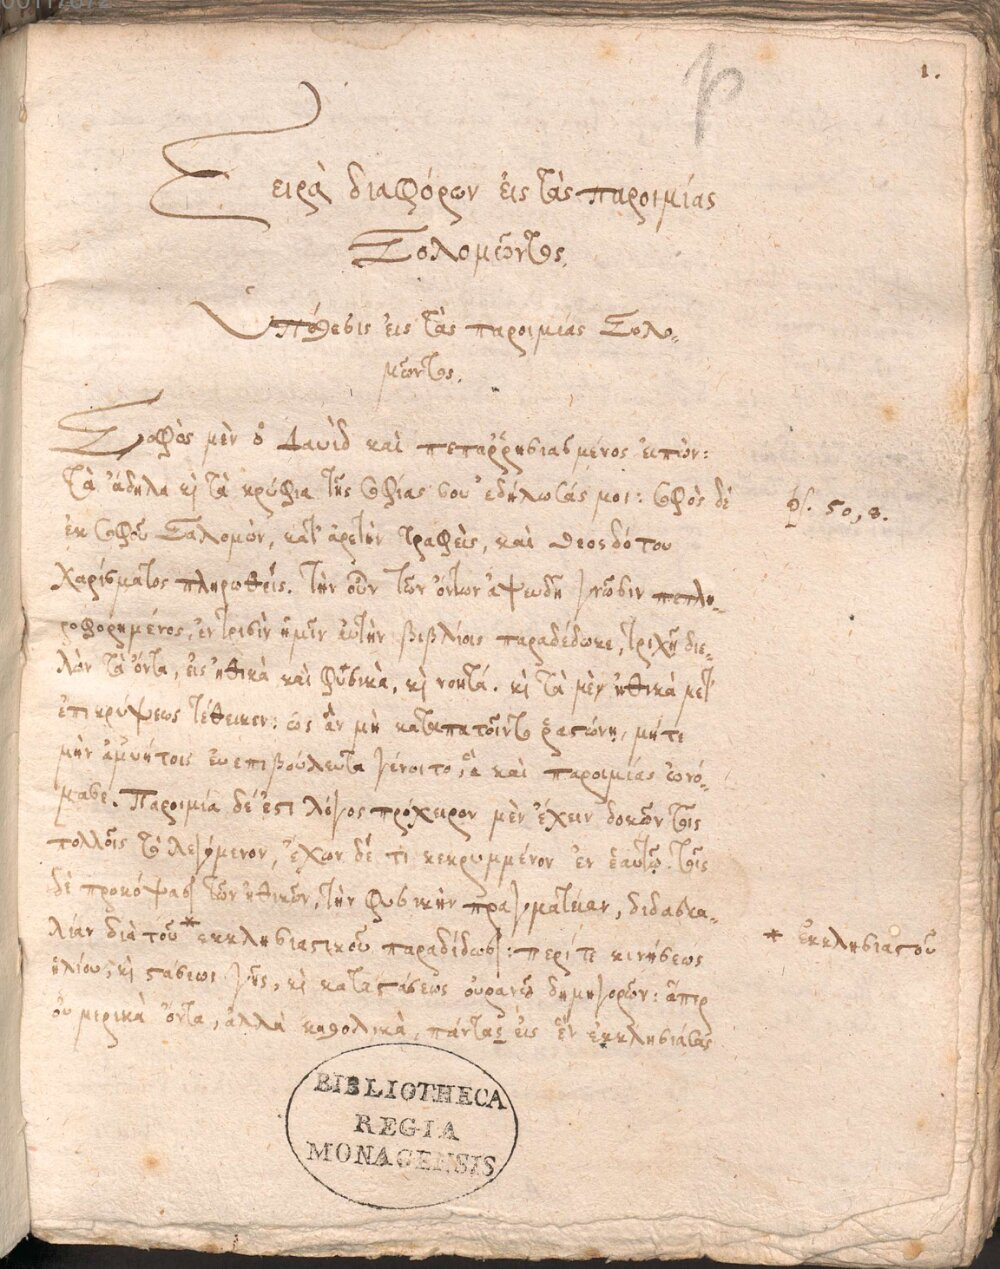 1.
Σειρὰ διαφόρων εἰς τὰς παροιμίας
Σολομῶντος.
Ὑπόθεσις εἰς τὰς παροιμίας Σολο-
μῶντος.
Σοφὸς μὲν ὁ Δαυὶδ καὶ πεπαῤῥησιασμένος εἰπὼν:
Τὰ ἄδηλα κὶ τὰ κρύφια τῆς σοφίας σου ἐδήλωσάς μοι: σοφὸς δὲ
ψ. 50, 8.
ἐκ σοφοῦ Σαλομὼν, κατ' ἀρετὴν τραφεὶς, καὶ θεοσδότου
χαρίσματος πληρωθεὶς. τὴν οὖν τῶν ὄντων ἀψευδῆ γνῶσιν πεπλη-
ροφορημένος, ἐν τρισὶν ἡμῖν αὐτὴν βιβλίοις παραδέδωκε, τριχῆ διε-
λὼν τὰ ὄντα, εἰς ἠθικὰ καὶ φυσικὰ, κὶ νοητά. κὶ τὰ μὲν ἠθικὰ μετ'
ἐπικρύψεως τέθεικεν: ὡς ἂν μὴ καταπατοῖντο ῥαστώνῃ, μήτε
μὴν ἀμυήτοις εὐεπιβούλευτα γένοιτο, ἃ καὶ παροιμίας ὠνό-
μασε. Παροιμία δέ ἐστι λόγος πρόχειρον μὲν ἔχειν δοκῶν τοῖς
πολλοῖς τὸ λεγόμενον, ἔχων δέ τι κεκρυμμένον ἐν ἑαυτῷ. τοῖς
δὲ προκόψασι τῶν ἠθικῶν, τὴν φυσικὴν πραγματείαν, διδασκα-
λίαν διὰ τοῦ * ἐκκλησιαστικοῦ παραδίδωσι: περί τε κινήσεως
* ἐκκλησιαστοῦ
ἡλίου, κὶ στάσεως γῆς, κὶ καταστάσεως οὐρανοῦ δημηγορῶν: ἅπερ
οὐ μερικὰ ὄντα, ἀλλὰ καθολικὰ, πάντας εἰς ἓν ἐκκλησιάσας
BIBLIOTHECA
REGIA
MONACENSIS